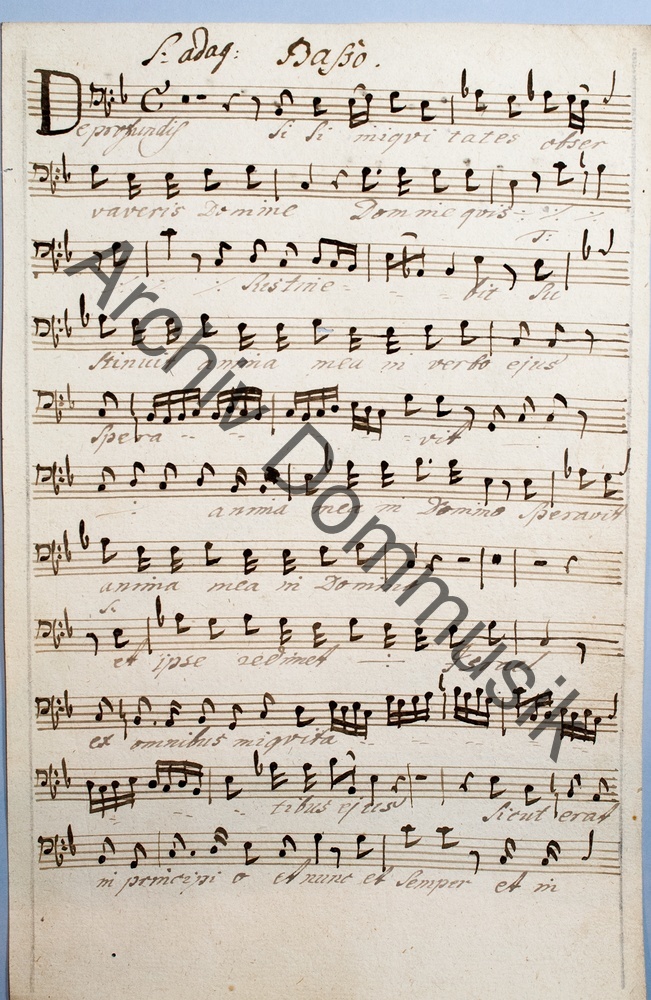 S: adag: Basso.
De profundis Si Si iniqvi tates obser
vaveris Domine Domine qvis
T:
Sustine bit Su
stinuit anima mea in verbo ejus
Spera vit
anima mea in Domino Speravit
anima mea in Domino
S.
et ipse redimet
et omnibus iniqvita
tibus ejus Sicut erat
in principi o et nunc et Semper et in
Archiv Dommusik